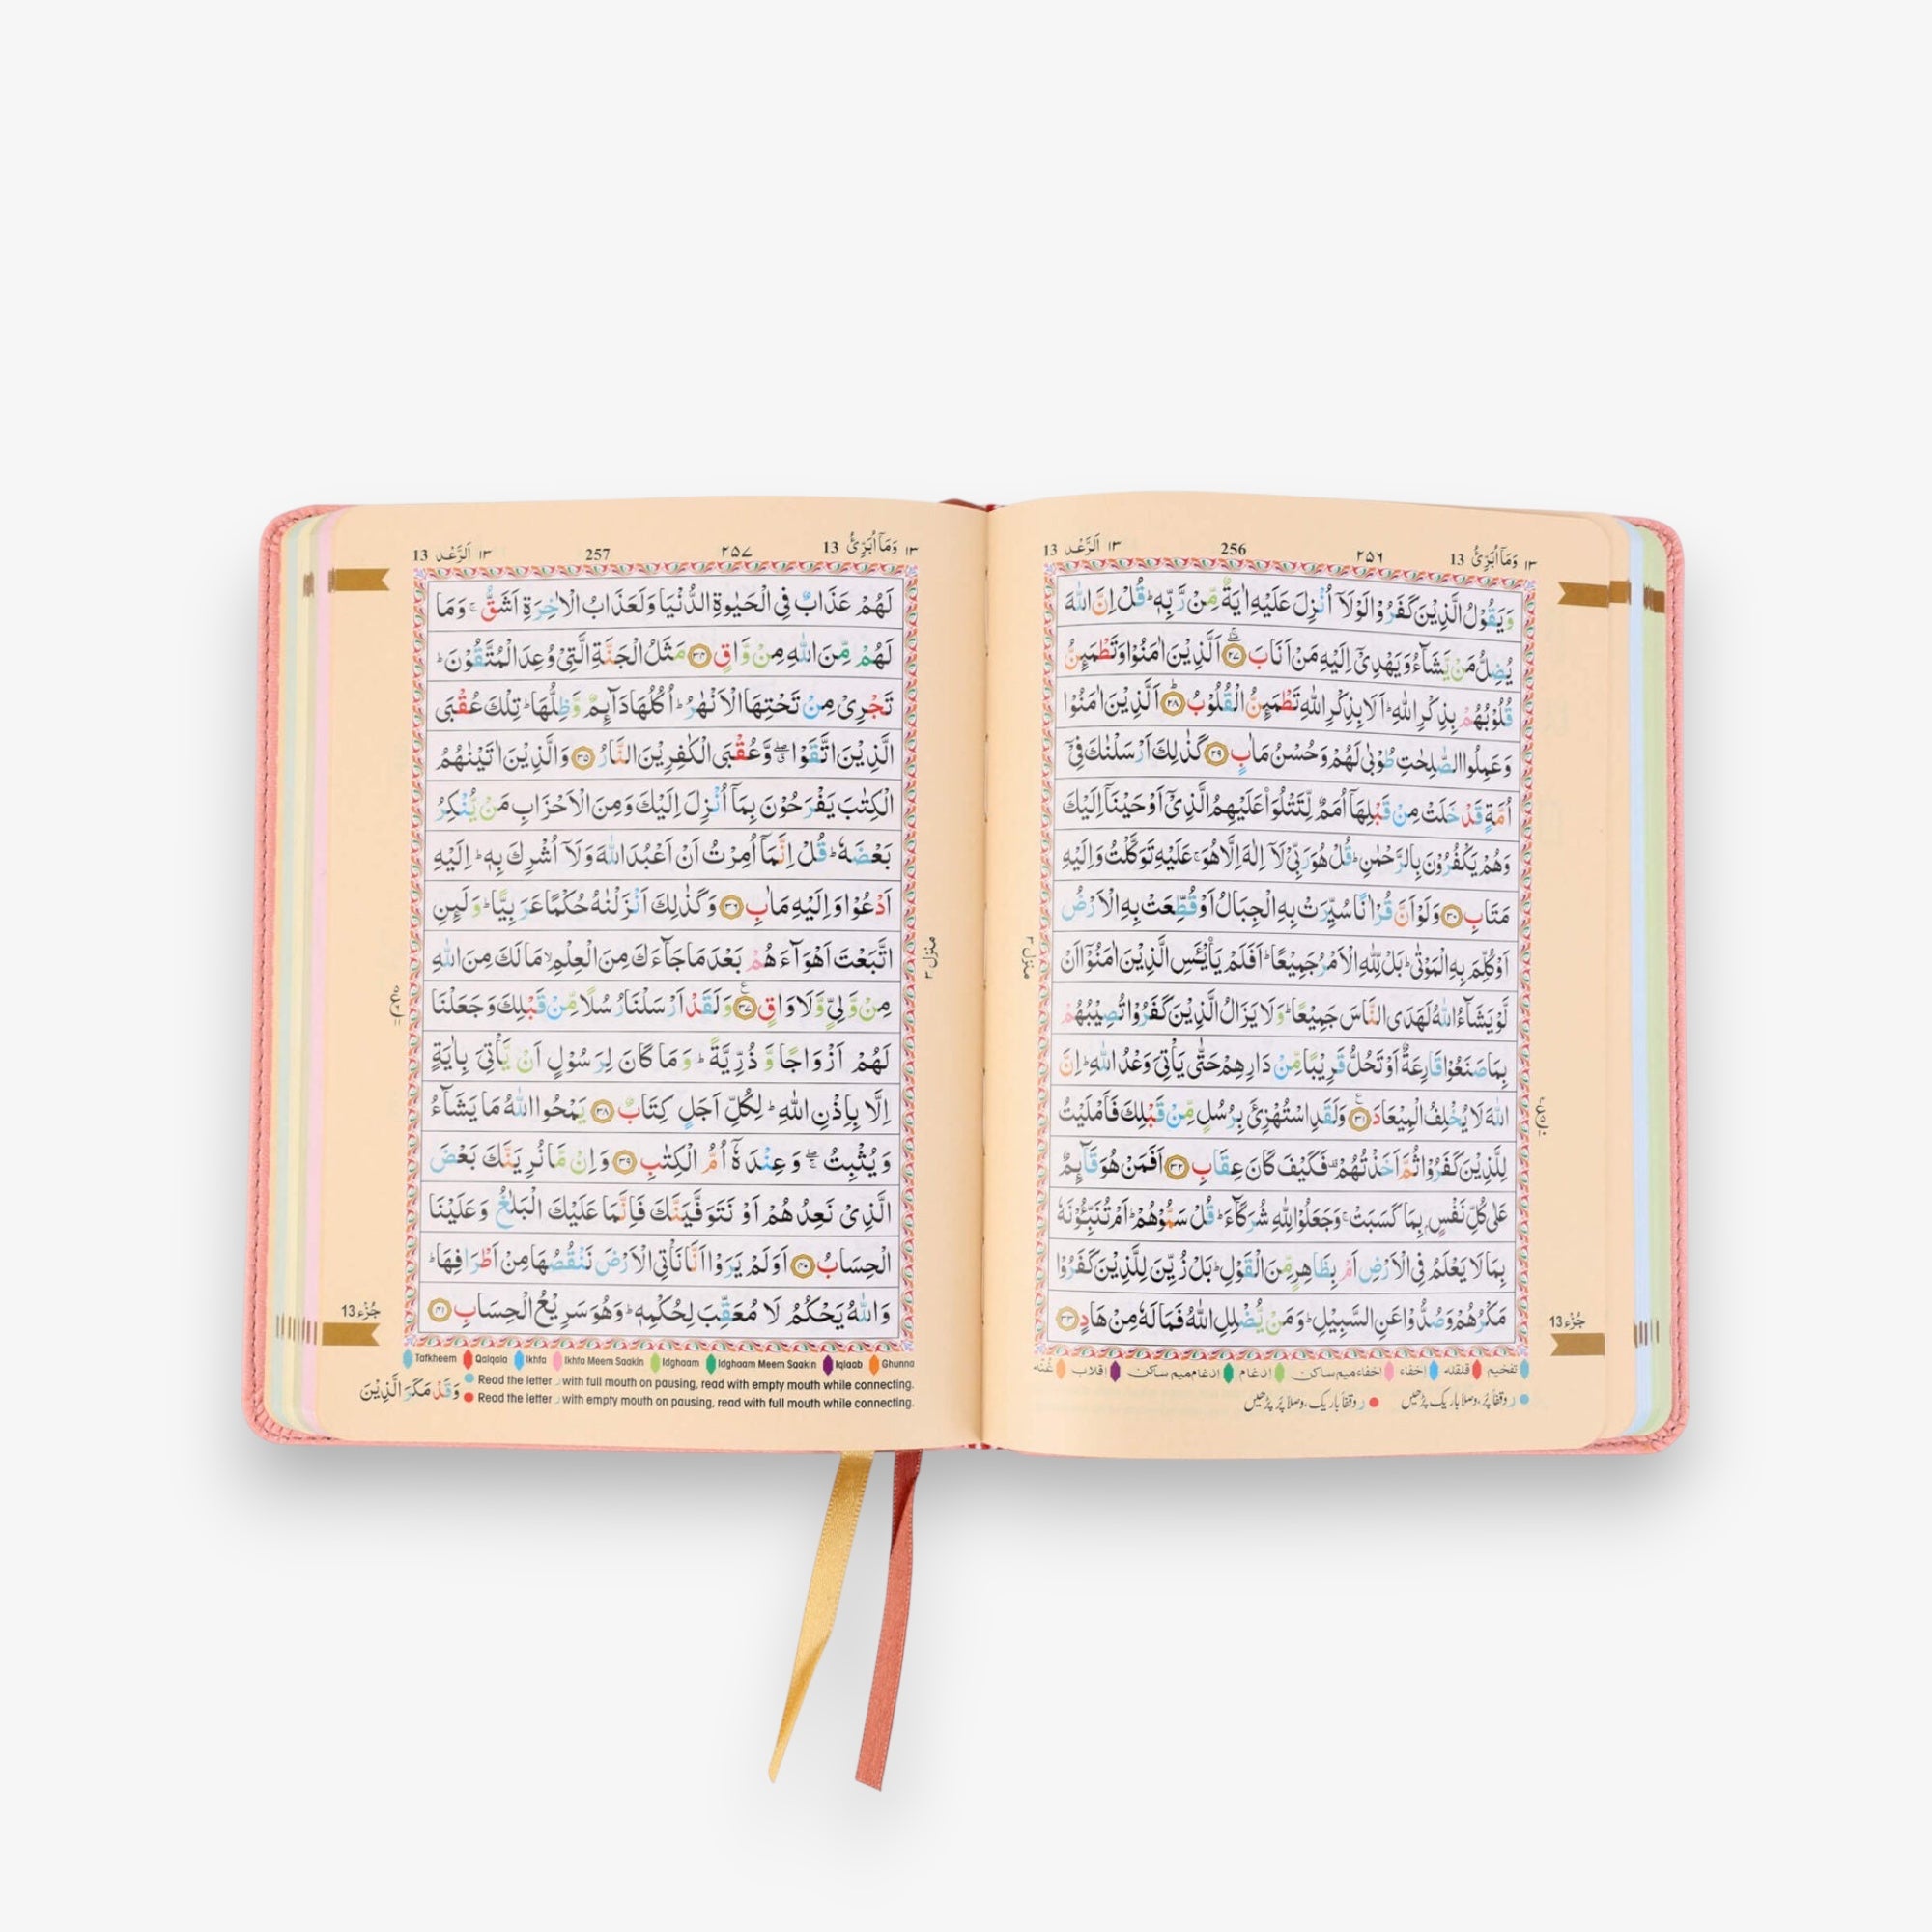 ١٣ وَمَآ اُبَرِّئُ 13 ٢٥٦ 256 ١٣ اَلرَّعْد 13
وَيَقُوْلُ الَّذِيْنَ كَفَرُوْا لَوْلَآ اُنْزِلَ عَلَيْهِ اٰيَةٌ مِّنْ رَّبِّهٖ ؕ قُلْ اِنَّ اللّٰهَ
يُضِلُّ مَنْ يَّشَآءُ وَيَهْدِىْۤ اِلَيْهِ مَنْ اَنَابَ ۞٢٧ اَلَّذِيْنَ اٰمَنُوْا وَتَطْمَىِٕنُّ
قُلُوْبُهُمْ بِذِكْرِ اللّٰهِ ؕ اَلَا بِذِكْرِ اللّٰهِ تَطْمَىِٕنُّ الْقُلُوْبُ ۞٢٨ اَلَّذِيْنَ اٰمَنُوْا
وَعَمِلُوا الصّٰلِحٰتِ طُوْبٰى لَهُمْ وَحُسْنُ مَاٰبٍ ۞٢٩ كَذٰلِكَ اَرْسَلْنٰكَ فِىْۤ
اُمَّةٍ قَدْ خَلَتْ مِنْ قَبْلِهَاۤ اُمَمٌ لِّتَتْلُوَا۟ عَلَيْهِمُ الَّذِىْۤ اَوْحَيْنَاۤ اِلَيْكَ
وَهُمْ يَكْفُرُوْنَ بِالرَّحْمٰنِ ؕ قُلْ هُوَ رَبِّىْ لَاۤ اِلٰهَ اِلَّا هُوَ ۚ عَلَيْهِ تَوَكَّلْتُ وَاِلَيْهِ
مَتَابِ ۞٣٠ وَلَوْ اَنَّ قُرْاٰنًا سُيِّرَتْ بِهِ الْجِبَالُ اَوْ قُطِّعَتْ بِهِ الْاَرْضُ
اَوْ كُلِّمَ بِهِ الْمَوْتٰى ؕ بَلْ لِّلّٰهِ الْاَمْرُ جَمِيْعًا ؕ اَفَلَمْ يَا۟يْـَٔسِ الَّذِيْنَ اٰمَنُوْۤا اَنْ
لَّوْ يَشَآءُ اللّٰهُ لَهَدَى النَّاسَ جَمِيْعًا ؕ وَلَا يَزَالُ الَّذِيْنَ كَفَرُوْا تُصِيْبُهُمْ
بِمَا صَنَعُوْا قَارِعَةٌ اَوْ تَحُلُّ قَرِيْبًا مِّنْ دَارِهِمْ حَتّٰى يَاْتِىَ وَعْدُ اللّٰهِ ؕ اِنَّ
اللّٰهَ لَا يُخْلِفُ الْمِيْعَادَ ۞٣١ وَلَقَدِ اسْتُهْزِئَ بِرُسُلٍ مِّنْ قَبْلِكَ فَاَمْلَيْتُ
لِلَّذِيْنَ كَفَرُوْا ثُمَّ اَخَذْتُهُمْ ۫ فَكَيْفَ كَانَ عِقَابِ ۞٣٢ اَفَمَنْ هُوَ قَآىِٕمٌ
عَلٰى كُلِّ نَفْسٍۭ بِمَا كَسَبَتْ ۚ وَجَعَلُوْا لِلّٰهِ شُرَكَآءَ ؕ قُلْ سَمُّوْهُمْ ؕ اَمْ تُنَبِّـُٔوْنَهٗ
بِمَا لَا يَعْلَمُ فِى الْاَرْضِ اَمْ بِظَاهِرٍ مِّنَ الْقَوْلِ ؕ بَلْ زُيِّنَ لِلَّذِيْنَ كَفَرُوْا
مَكْرُهُمْ وَصُدُّوْا عَنِ السَّبِيْلِ ؕ وَمَنْ يُّضْلِلِ اللّٰهُ فَمَا لَهٗ مِنْ هَادٍ ۞٣٣
منزل ٣
جُزْء 13
تفخيم قلقله إخفاء إخفاءميم ساكن إدغام إدغام ميم ساكن اقلاب غُنّه
ر وقفاً پُر، وصلاً باریک پڑھیں ر وقفاً باریک، وصلاً پُر پڑھیں
١٣ وَمَآ اُبَرِّئُ 13 ٢٥٧ 257 ١٣ اَلرَّعْد 13
لَهُمْ عَذَابٌ فِى الْحَيٰوةِ الدُّنْيَا وَلَعَذَابُ الْاٰخِرَةِ اَشَقُّ ۚ وَمَا
لَهُمْ مِّنَ اللّٰهِ مِنْ وَّاقٍ ۞٣٤ مَثَلُ الْجَنَّةِ الَّتِىْ وُعِدَ الْمُتَّقُوْنَ ؕ
تَجْرِىْ مِنْ تَحْتِهَا الْاَنْهٰرُ ؕ اُكُلُهَا دَآىِٕمٌ وَّظِلُّهَا ؕ تِلْكَ عُقْبَى
الَّذِيْنَ اتَّقَوْا ۖۗ وَّعُقْبَى الْكٰفِرِيْنَ النَّارُ ۞٣٥ وَالَّذِيْنَ اٰتَيْنٰهُمُ
الْكِتٰبَ يَفْرَحُوْنَ بِمَاۤ اُنْزِلَ اِلَيْكَ وَمِنَ الْاَحْزَابِ مَنْ يُّنْكِرُ
بَعْضَهٗ ؕ قُلْ اِنَّمَاۤ اُمِرْتُ اَنْ اَعْبُدَ اللّٰهَ وَلَاۤ اُشْرِكَ بِهٖ ؕ اِلَيْهِ
اَدْعُوْا وَاِلَيْهِ مَاٰبِ ۞٣٦ وَكَذٰلِكَ اَنْزَلْنٰهُ حُكْمًا عَرَبِيًّا ؕ وَلَىِٕنِ
اتَّبَعْتَ اَهْوَآءَهُمْ بَعْدَ مَا جَآءَكَ مِنَ الْعِلْمِ ۙ مَا لَكَ مِنَ اللّٰهِ
مِنْ وَّلِىٍّ وَّلَا وَاقٍ ۞٣٧ وَلَقَدْ اَرْسَلْنَا رُسُلًا مِّنْ قَبْلِكَ وَجَعَلْنَا
لَهُمْ اَزْوَاجًا وَّذُرِّيَّةً ؕ وَمَا كَانَ لِرَسُوْلٍ اَنْ يَّاْتِىَ بِاٰيَةٍ
اِلَّا بِاِذْنِ اللّٰهِ ؕ لِكُلِّ اَجَلٍ كِتَابٌ ۞٣٨ يَمْحُوا اللّٰهُ مَا يَشَآءُ
وَيُثْبِتُ ۖۚ وَعِنْدَهٗۤ اُمُّ الْكِتٰبِ ۞٣٩ وَاِنْ مَّا نُرِيَنَّكَ بَعْضَ
الَّذِىْ نَعِدُهُمْ اَوْ نَتَوَفَّيَنَّكَ فَاِنَّمَا عَلَيْكَ الْبَلٰغُ وَعَلَيْنَا
الْحِسَابُ ۞٤٠ اَوَلَمْ يَرَوْا اَنَّا نَاْتِى الْاَرْضَ نَنْقُصُهَا مِنْ اَطْرَافِهَا ؕ
وَاللّٰهُ يَحْكُمُ لَا مُعَقِّبَ لِحُكْمِهٖ ؕ وَهُوَ سَرِيْعُ الْحِسَابِ ۞٤١
منزل ٣
جُزْء 13
Tafkheem Qalqala Ikhfa Ikhfa Meem Saakin Idghaam Idghaam Meem Saakin Iqlaab Ghunna
Read the letter ر with full mouth on pausing, read with empty mouth while connecting.
Read the letter ر with empty mouth on pausing, read with full mouth while connecting.
وَقَدْ مَكَرَ الَّذِيْنَ